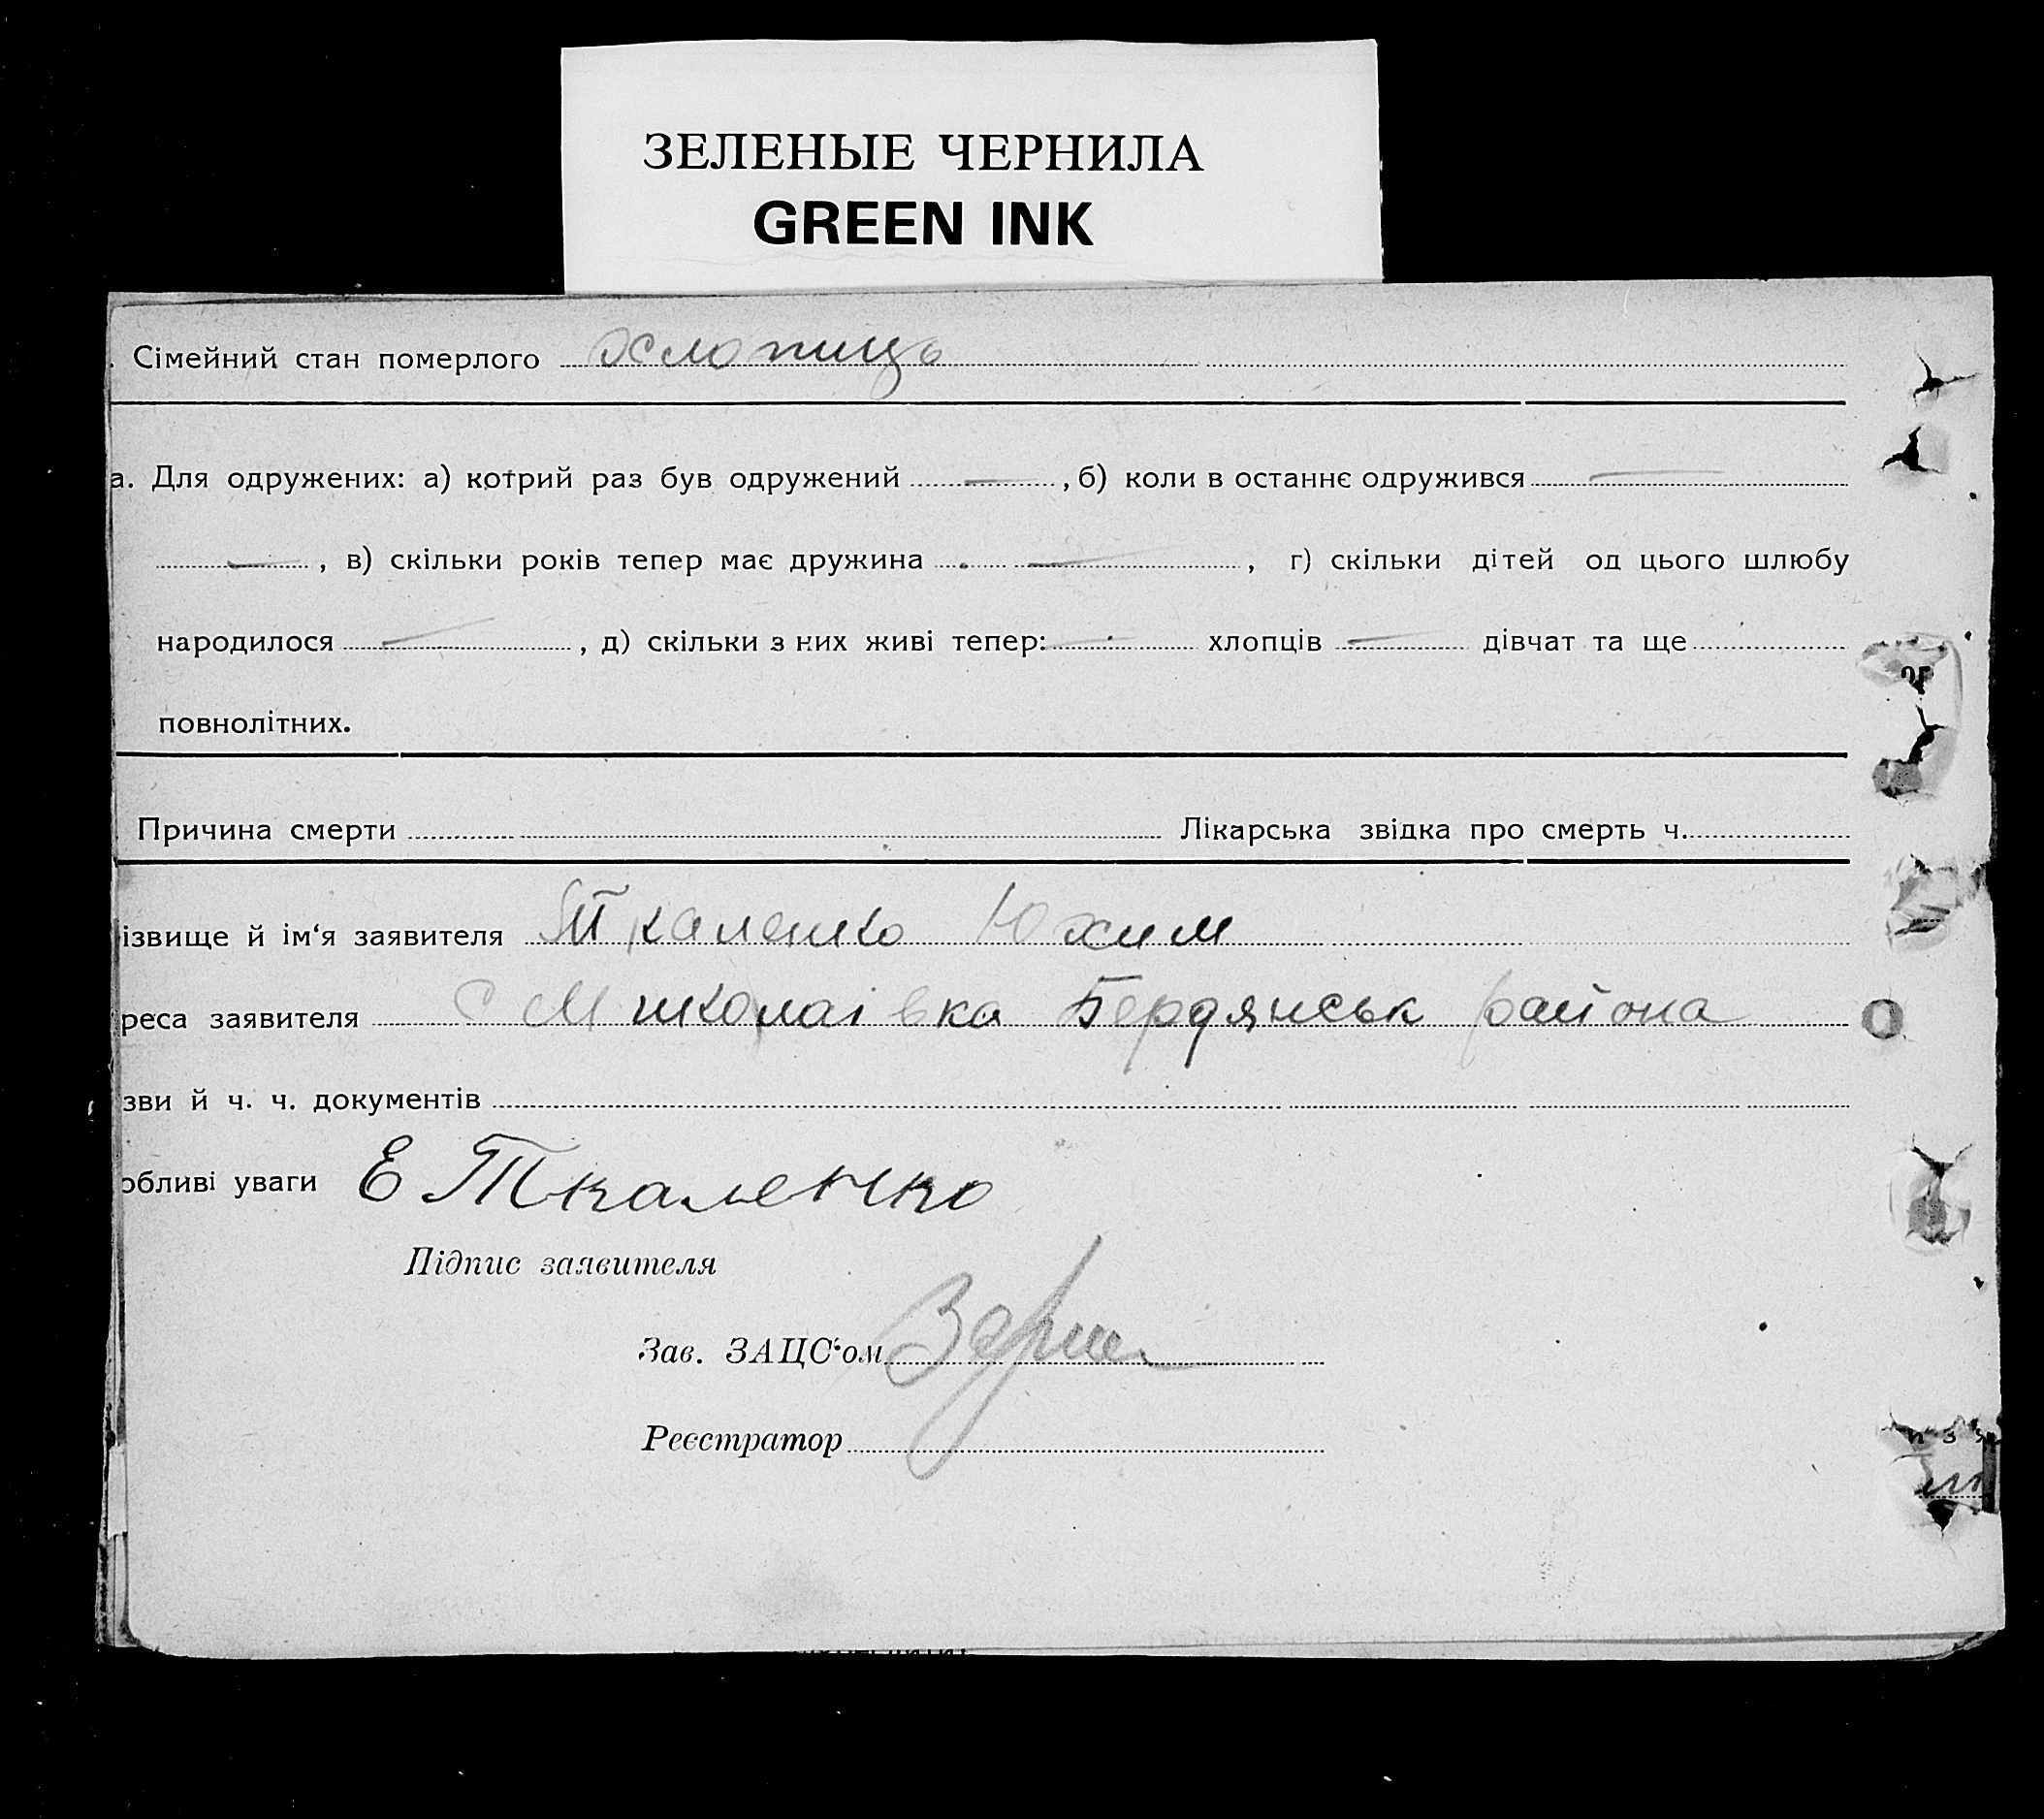 ЗЕЛЕНЫЕ ЧЕРНИЛА
GREEN INK
Сімейний стан померлого хлопиць
а. Для одружених: а) котрий раз був одружений — , б) коли в останнє одружився —
— , в) скільки років тепер має дружина — , г) скільки дітей од цього шлюбу
народилося — , д) скільки з них живі тепер: — хлопців — дівчат та ще
повнолітних.
Причина смерти Лікарська звідка про смерть ч.
ізвище й ім‘я заявителя Ткаленко Юхим
реса заявителя с Миколаівка Бердянськ району
зви й ч. ч. документів
обливі уваги Е Ткаленко
Підпис заявителя
Зав. ЗАЦС‘ом
Реєстратор